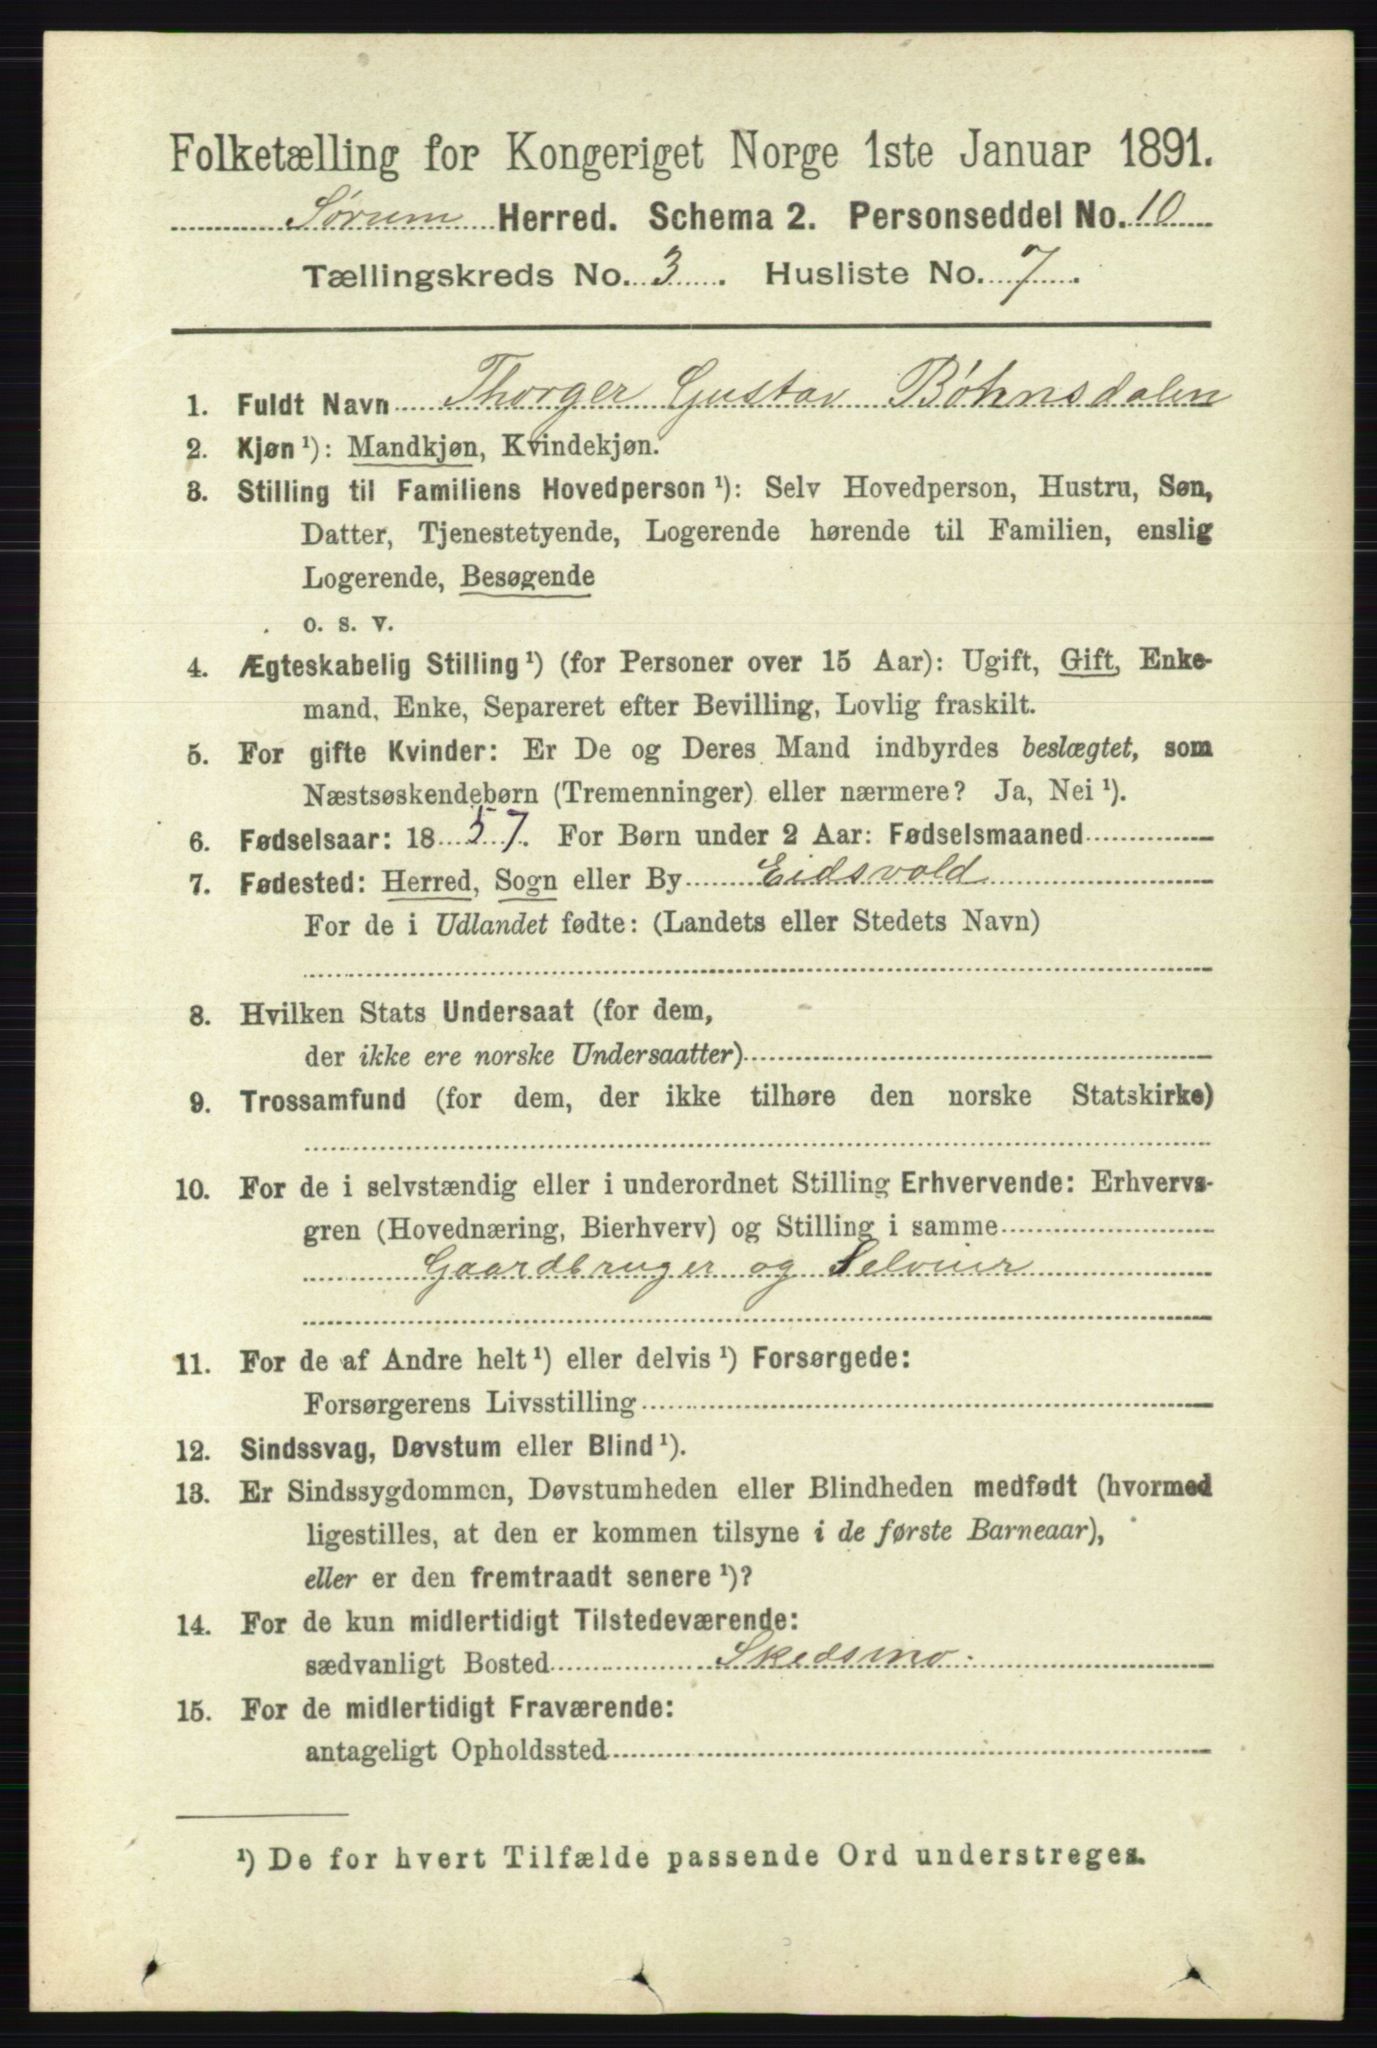 Folketælling for Kongeriget Norge 1ste Januar 1891.
Sørum Herred. Schema 2. Personseddel No. 10
Tællingskreds No. 3. Husliste No. 7.
1. Fuldt Navn Thorger Gustav Bøhnsdalen
2. Kjøn¹): Mandkjøn, Kvindekjøn.
3. Stilling til Familiens Hovedperson¹): Selv Hovedperson, Hustru, Søn,
Datter, Tjenestetyende, Logerende hørende til Familien, enslig
Logerende, Besøgende
o. s. v.
4. Ægteskabelig Stilling¹) (for Personer over 15 Aar): Ugift, Gift, Enke-
mand, Enke, Separeret efter Bevilling, Lovlig fraskilt.
5. For gifte Kvinder: Er De og Deres Mand indbyrdes beslægtet, som
Næstsøskendebørn (Tremenninger) eller nærmere? Ja, Nei¹).
6. Fødselsaar: 1857. For Børn under 2 Aar: Fødselsmaaned
7. Fødested: Herred, Sogn eller By Eidsvold
For de i Udlandet fødte: (Landets eller Stedets Navn)
8. Hvilken Stats Undersaat (for dem,
der ikke ere norske Undersaatter)
9. Trossamfund (for dem, der ikke tilhøre den norske Statskirke)
10. For de i selvstændig eller i underordnet Stilling Erhvervende: Erhvervs-
gren (Hovednæring, Bierhverv) og Stilling i samme
Gaardbruger og Selveier
11. For de af Andre helt¹) eller delvis¹) Forsørgede:
Forsørgerens Livsstilling
12. Sindssvag, Døvstum eller Blind¹).
13. Er Sindssygdommen, Døvstumheden eller Blindheden medfødt (hvormed
ligestilles, at den er kommen tilsyne i de første Barneaar),
eller er den fremtraadt senere¹)?
14. For de kun midlertidigt Tilstedeværende:
sædvanligt Bosted Skedsmo.
15. For de midlertidigt Fraværende:
antageligt Opholdssted
¹) De for hvert Tilfælde passende Ord understreges.